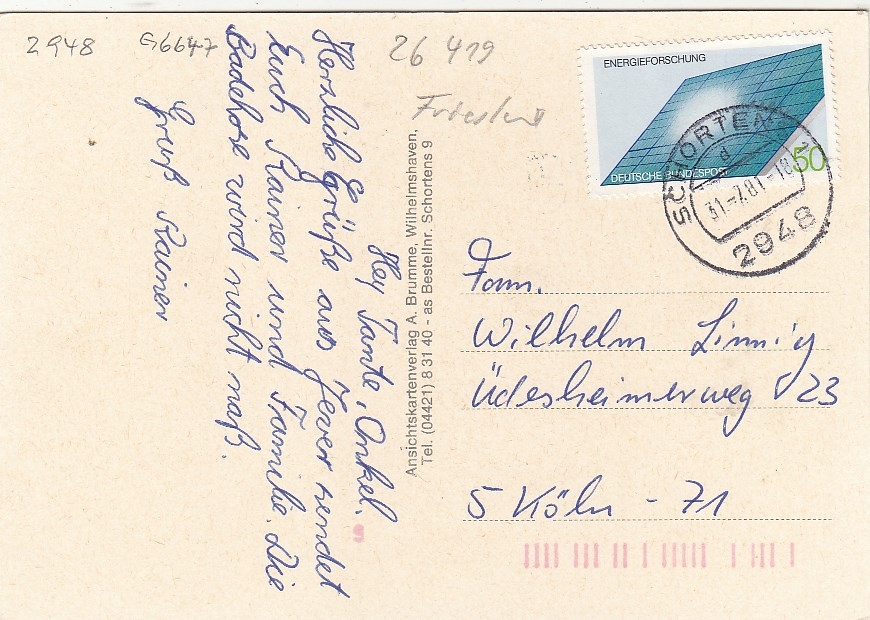 2948 G6647
26 419
Frieslan
Hey Tante, Onkel.
Herzliche Grüße aus Jever sendet
Euch Rainer und Familie. Die
Badehose wird nicht naß.
Gruß Rainer
Ansichtskartenverlag A. Brumme, Wilhelmshaven,
Tel. (04421) 8 31 40 - as Bestellnr. Schortens 9
ENERGIEFORSCHUNG
DEUTSCHE BUNDESPOST
50
SCHORTENS 2
d
31.-7.81-18
2948
Fam.
Wilhelm Linnig
Üdesheimerweg 23
5 Köln - 71
9